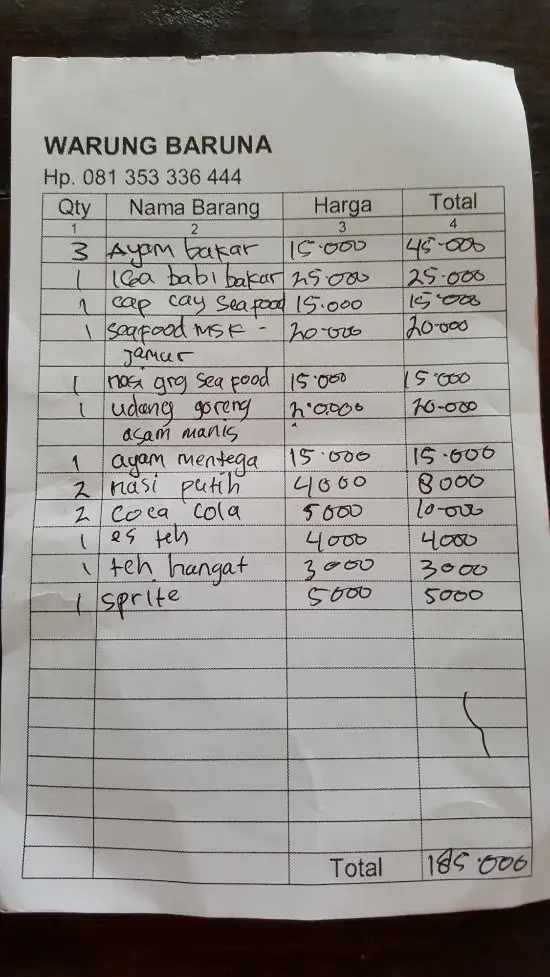 WARUNG BARUNA
Hp. 081 353 336 444
Qty Nama Barang Harga Total
1 2 3 4
3 Ayam bakar 15.000 45.000
1 Iga babi bakar 25.000 25.000
1 cap cay seafood 15.000 15.000
1 seafood MSK - 20.000 20.000
jamur
1 nasi grg sea food 15.000 15.000
1 udang goreng 20.000 20.000
asam manis
1 ayam mentega 15.000 15.000
2 nasi putih 4000 8000
2 coca cola 5000 10.000
1 es teh 4000 4000
1 teh hangat 3000 3000
1 sprite 5000 5000
Total 185.000